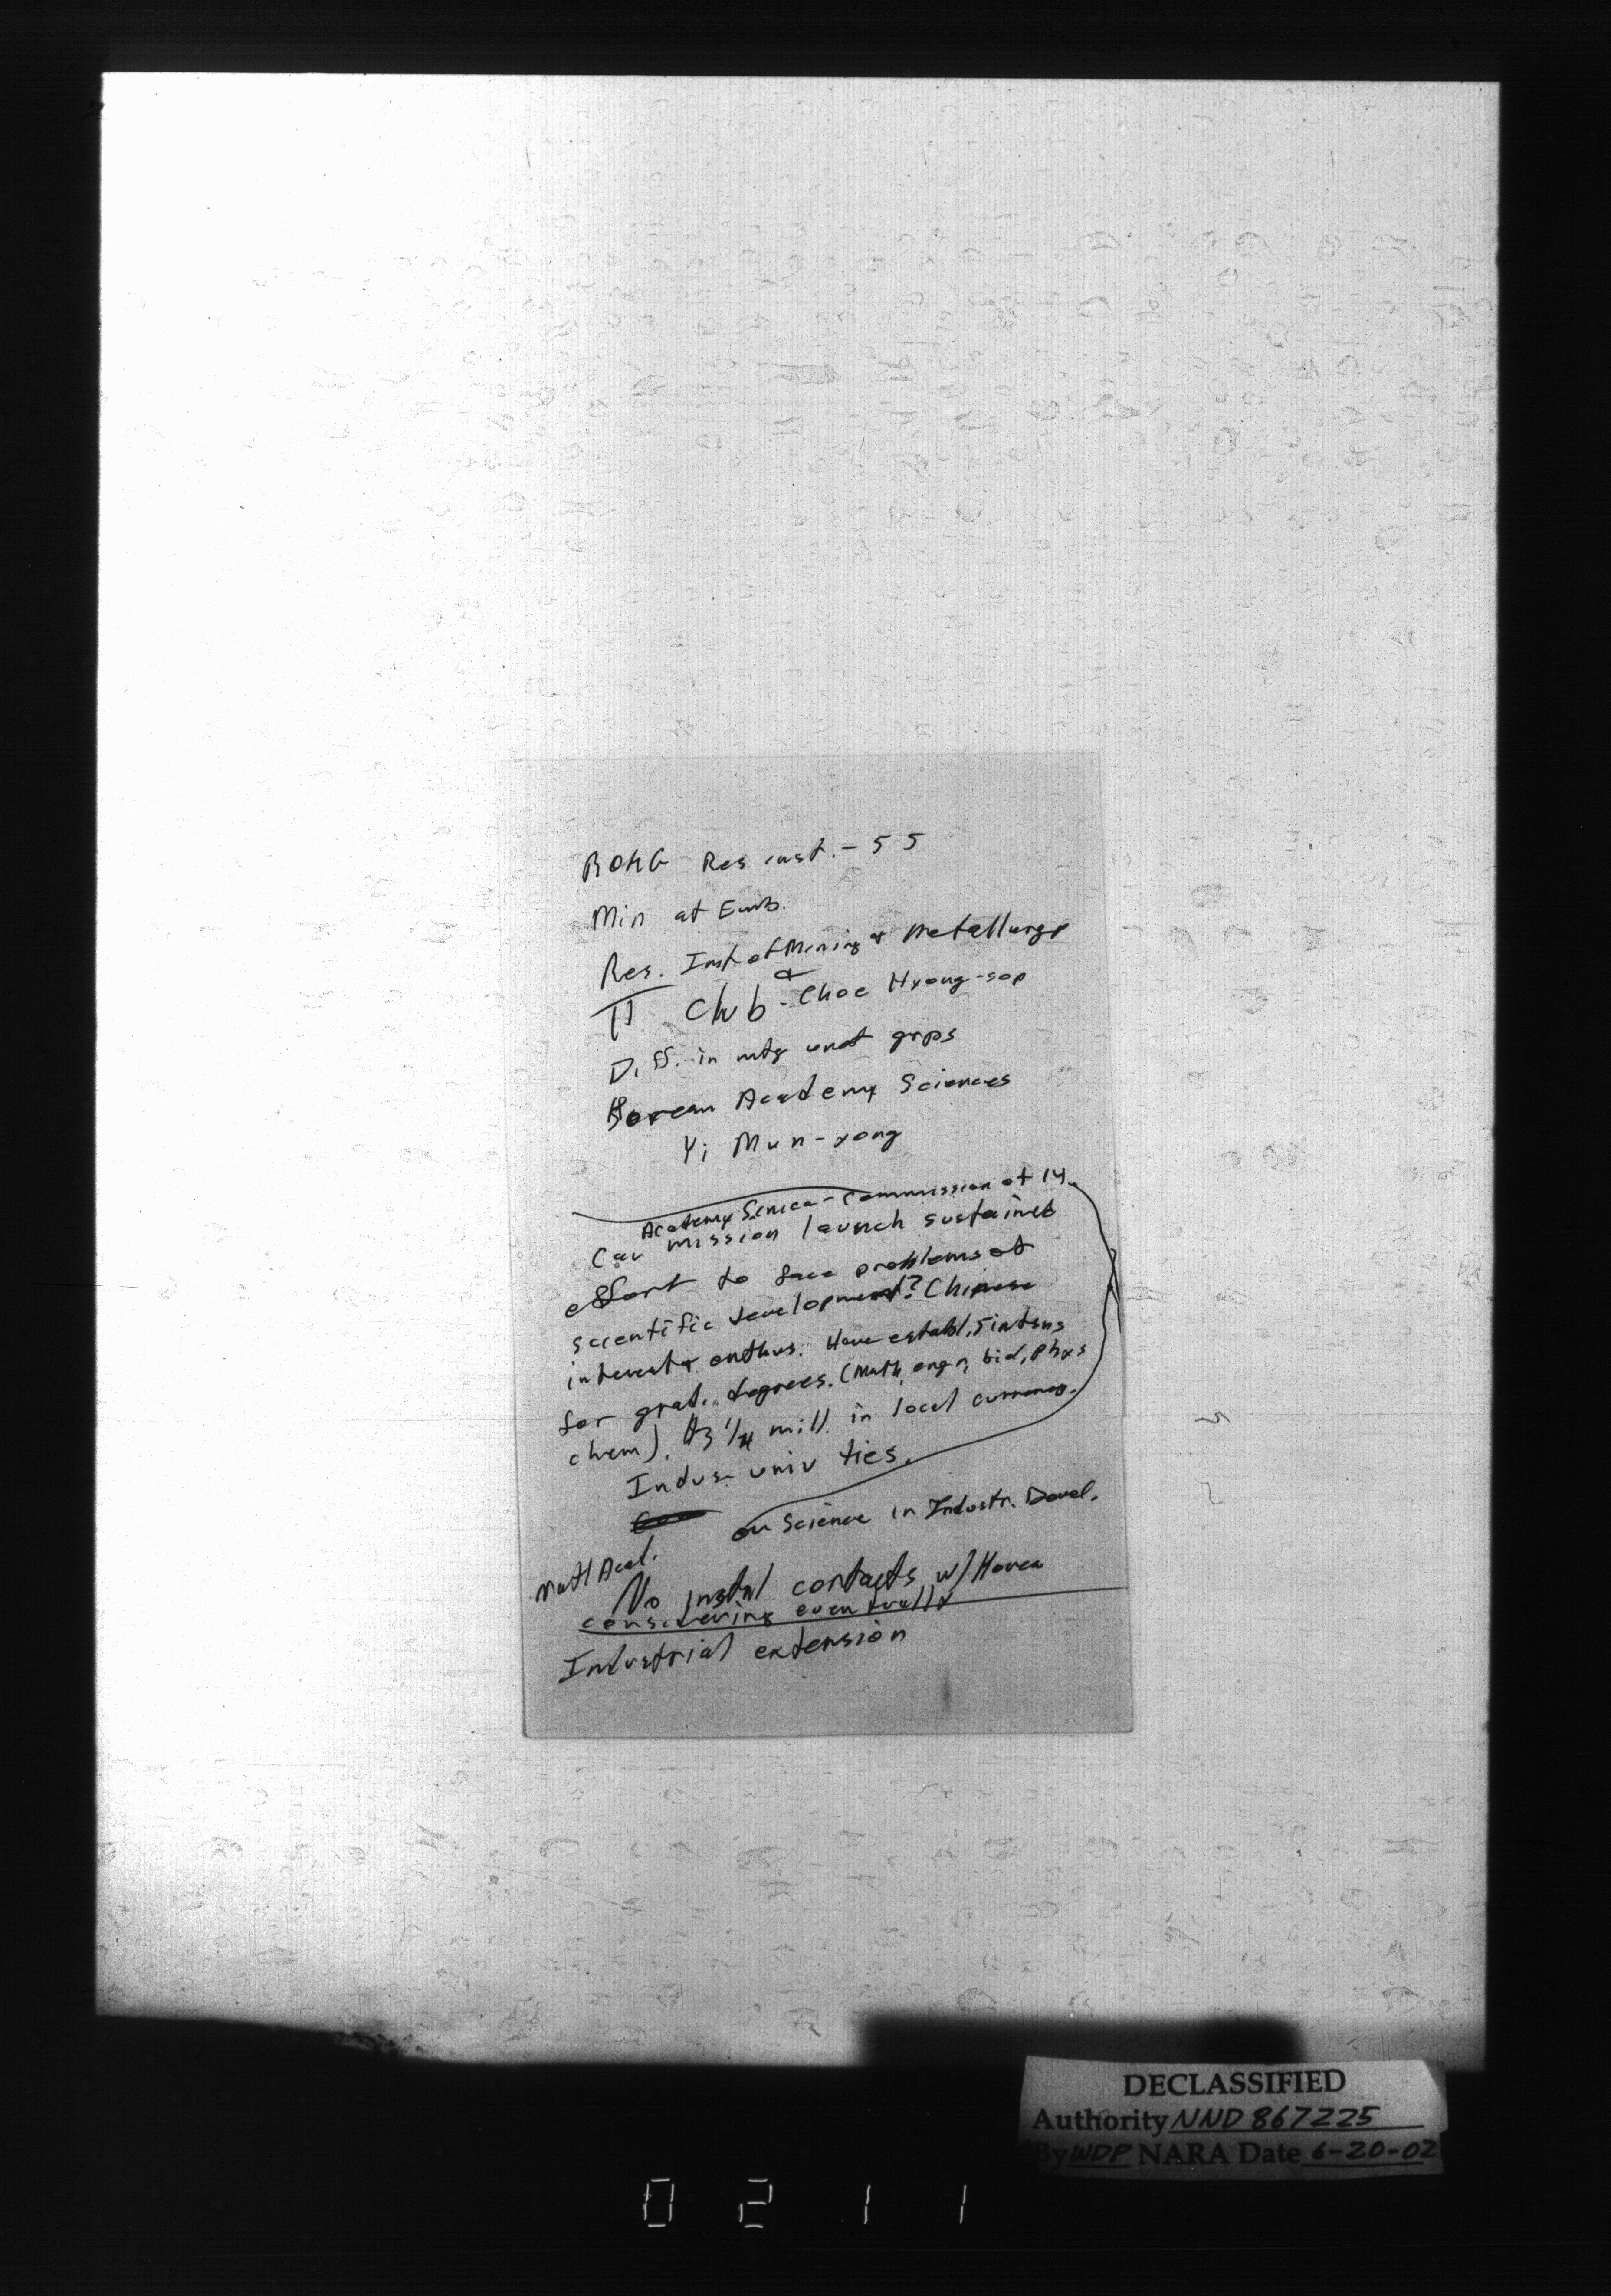 ROKG Res inst. - 55
Min at Emb.
Res. Inst of Mining & Metallurgy
Club - Choe Hyong-sop
Diff. in mtg unof grps
Korean Academy Sciences
Yi Mun-yong
Academy Sinica - Commission of 14.
Can mission launch sustained
effort to face problems of
scientific development? Chinese
interest & enthus. Have establ. 5 instns
for grad. degrees. (Math, engn, biol, phys
chem). 3 1/4 mill. in local currency.
Indus. univ ties.
on Science in Industr. Devel.
Natl Acad.
No instnl contacts w/ Korea
considering eventually
Industrial extension
DECLASSIFIED
Authority NND 867225
By WDP NARA Date 6-20-02
0211